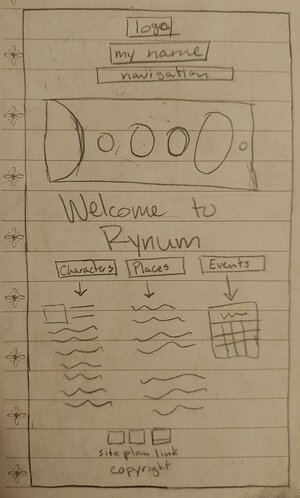 logo
my name
navigation
Welcome to
Rynum
Characters Places Events
site plan link
copyright